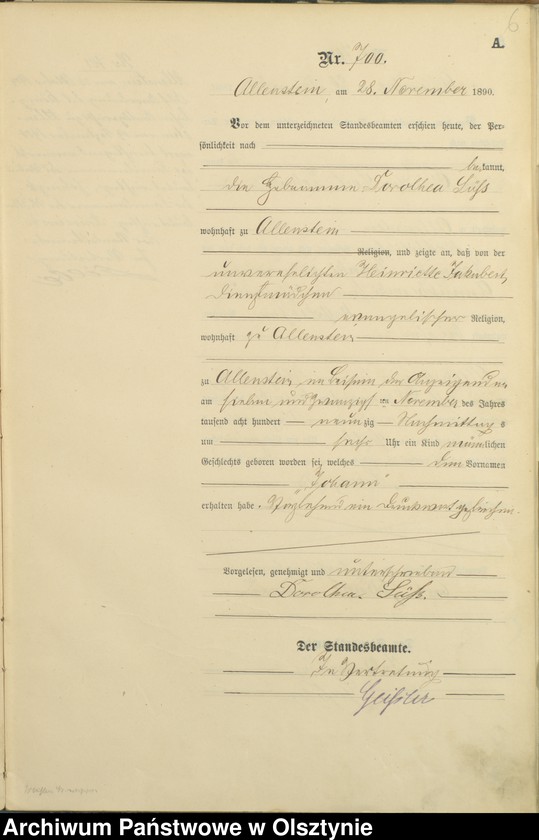 6
A.
Nr. 700.
Allenstein, am 28. November 1890.
Vor dem unterzeichneten Standesbeamten erschien heute, der Per-
sönlichkeit nach
bekannt,
die Hebamme Dorothea Süß
wohnhaft zu Allenstein
Religion, und zeigte an, daß von der
unverehelichten Heinriette Jakubert,
Dienstmädchen
evangelischer Religion,
wohnhaft zu Allenstein
zu Allenstein, im Beisein der Anzeigenden
am sieben und zwanzigsten November des Jahres
tausend acht hundert neunzig Nachmittags
um sechs Uhr ein Kind männlichen
Geschlechts geboren worden sei, welches den Vornamen
Johann
erhalten habe. Vorstehend ein Druckwort gestrichen.
Vorgelesen, genehmigt und unterschrieben
Dorothea Süß.
Der Standesbeamte.
In Vertretung
Geißler
Archiwum Państwowe w Olsztynie